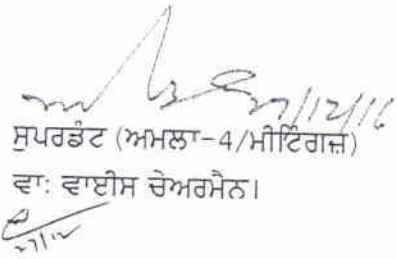 27/12/16
ਸੁਪਰਡੰਟ (ਅਮਲਾ-4/ਮੀਟਿੰਗਜ਼)
ਵਾ: ਵਾਈਸ ਚੇਅਰਮੈਨ।
27/12